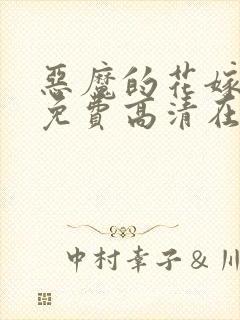 惡魔的花嫁
免費高清在
中村幸子&川